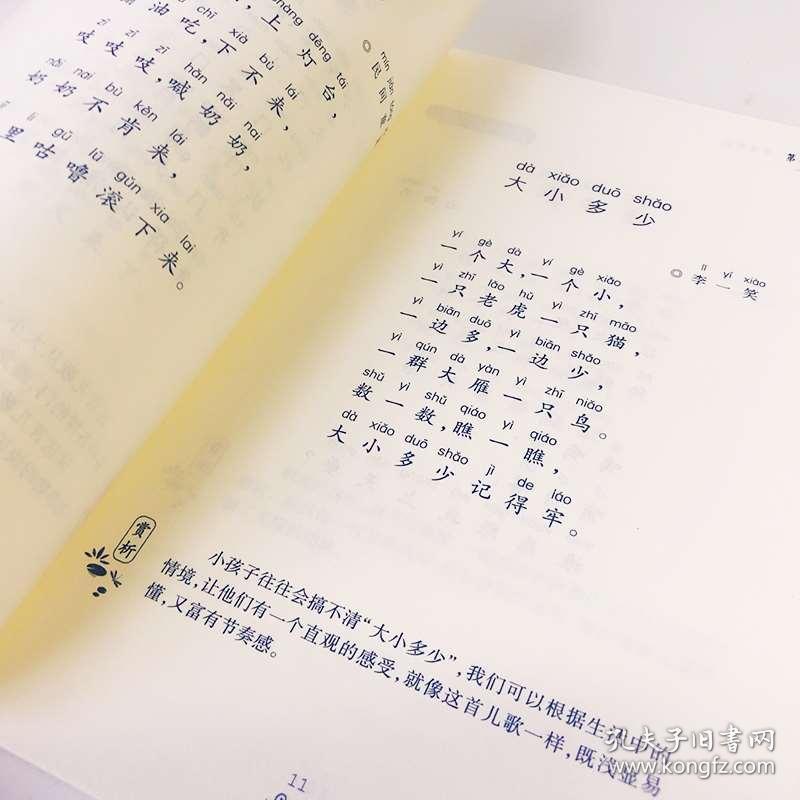 shàng dēng tái
，上灯台，
chī xià bù lái
油吃，下不来，
zī zī zī hǎn nǎi nai
吱吱吱，喊奶奶，
nǎi nai bù kěn lái
奶奶不肯来，
li gū lū gǔn xia lai
里咕噜滚下来。
mín jiān
民间
第
dà xiǎo duō shǎo
大小多少
lǐ yí xiào
◎李一笑
yí gè dà yí gè xiǎo
一个大，一个小，
yì zhī lǎo hǔ yì zhī māo
一只老虎一只猫，
yì biān duō yì biān shǎo
一边多，一边少，
yì qún dà yàn yì zhī niǎo
一群大雁一只鸟。
shǔ yì shǔ qiáo yì qiáo
数一数，瞧一瞧，
dà xiǎo duō shǎo jì de láo
大小多少记得牢。
赏析
小孩子往往会搞不清“大小多少”，我们可以根据生活中的
情境，让他们有一个直观的感受，就像这首儿歌一样，既浅显易
懂，又富有节奏感。
11
孔夫子旧书网
www.kongfz.com